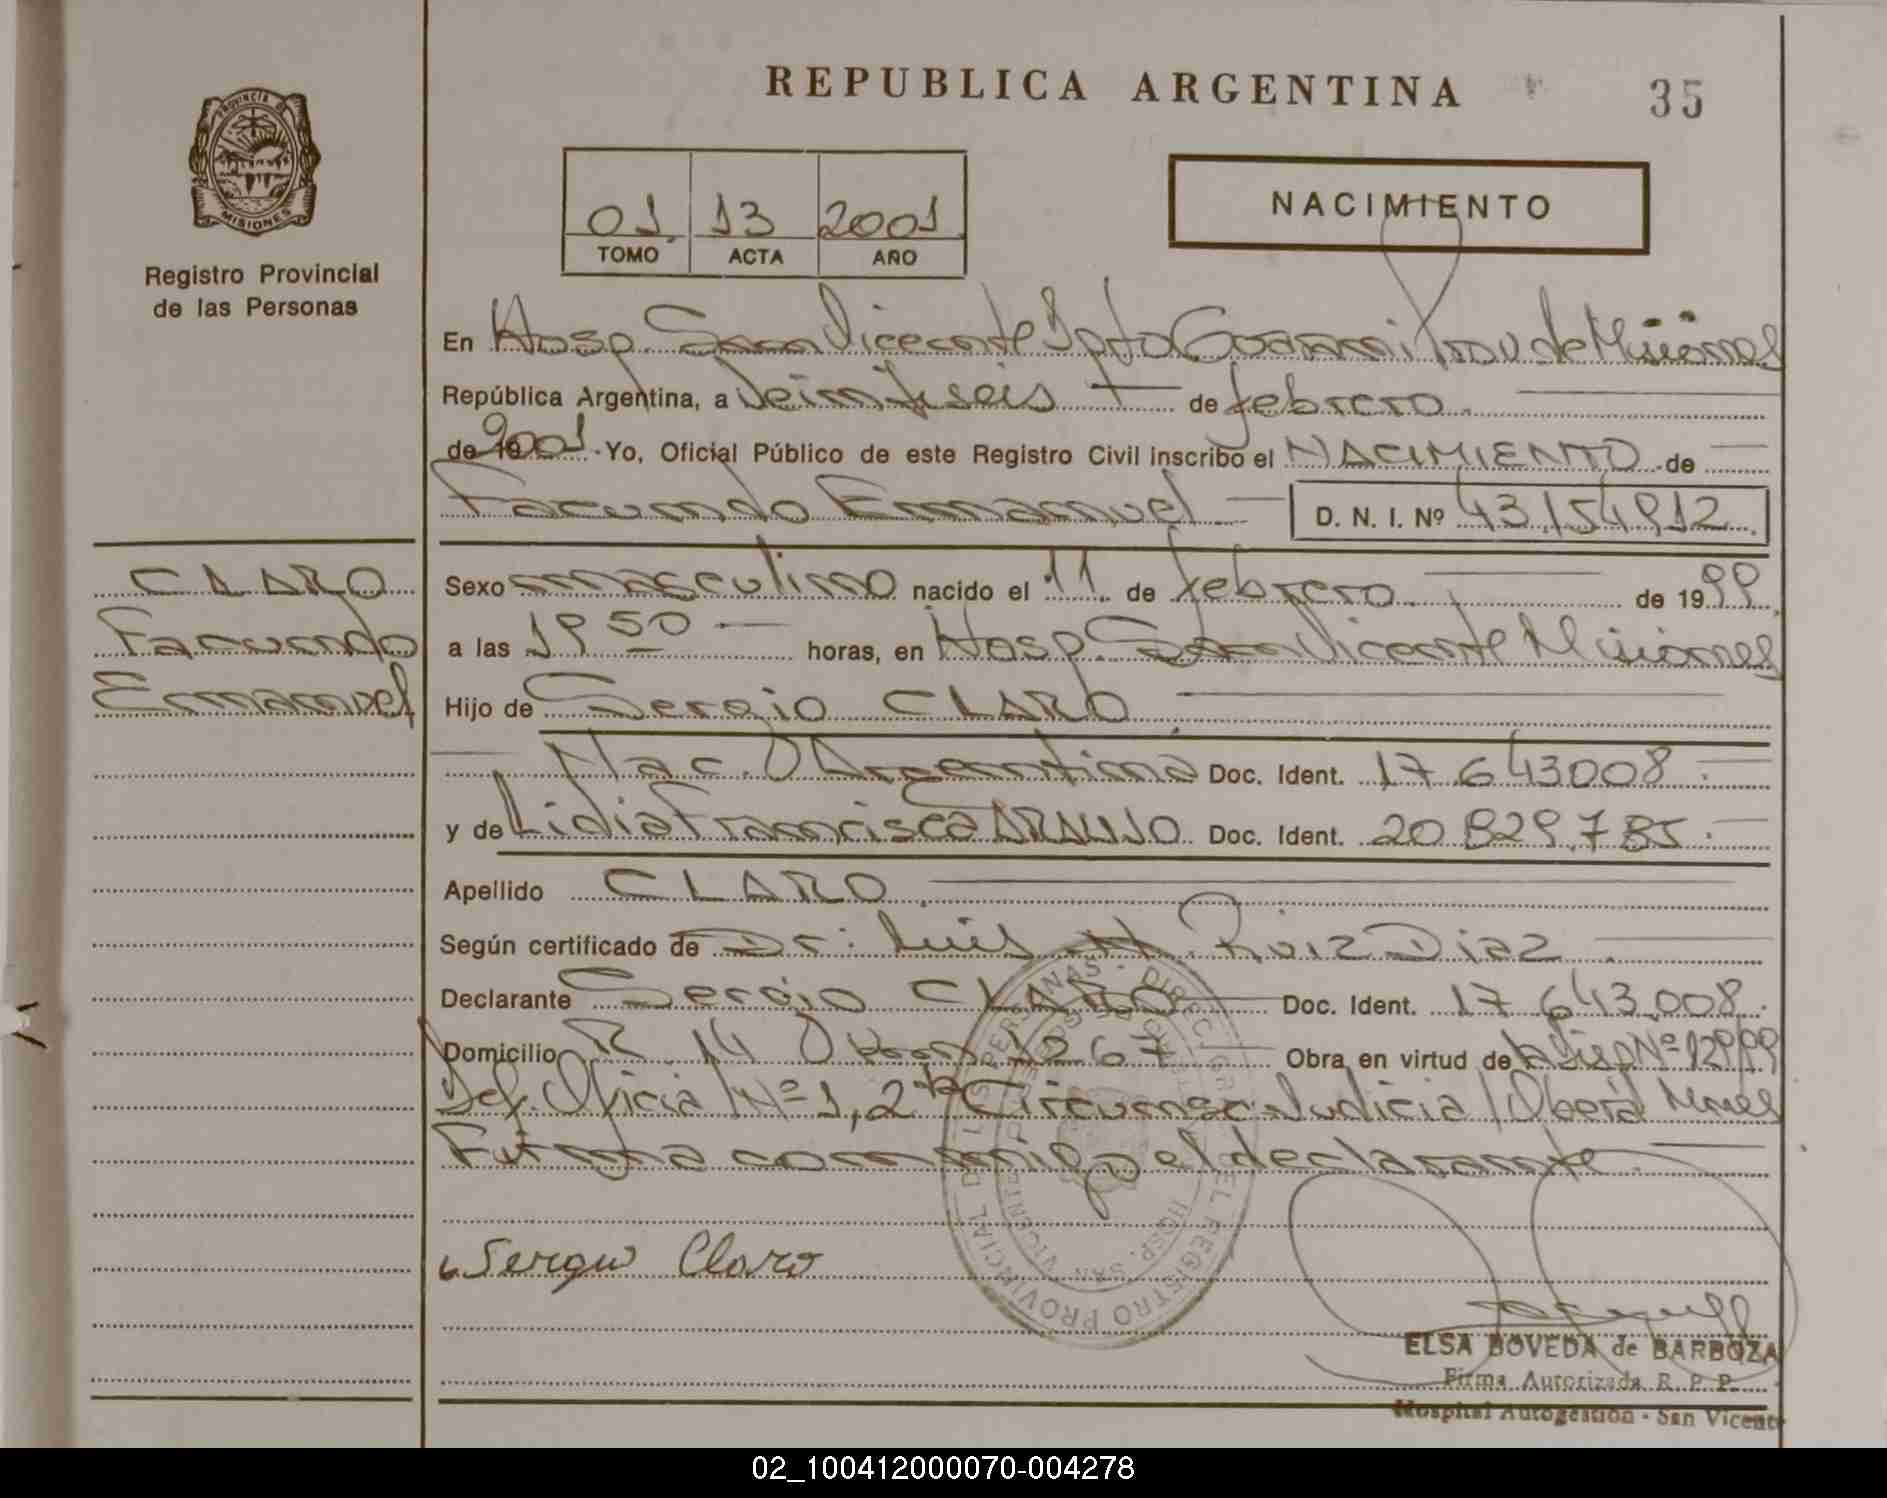 REPUBLICA ARGENTINA
35
PROVINCIA DE
MISIONES
Registro Provincial
de las Personas
01 13 2001
TOMO ACTA AÑO
NACIMIENTO
En Hosp. San Vicente Dpto Guarani Prov de Misiones
República Argentina, a Veintiseis de febrero
de 19 2001 Yo, Oficial Público de este Registro Civil inscribo el NACIMIENTO de
Facundo Emmanuel D. N. I. Nº 43.154.912
CLARO
Facundo
Emmanuel
Sexo masculino nacido el 11 de febrero de 1999
a las 19 50 horas, en Hosp. San Vicente Misiones
Hijo de Sergio CLARO
Nac. Argentina Doc. Ident. 17.643.008
y de Lidia Francisca ARAUJO Doc. Ident. 20.829.785
Apellido CLARO
Según certificado de Dr: Luis H. Ruiz Diaz
Declarante Sergio CLARO Doc. Ident. 17.643.008
Domicilio R. 14 1267 Obra en virtud de la Disp Nº 129/99
Def. Oficial Nº 1, 2da Circunsc. Judicial Oberá Mnes
Firma conmigo el declarante
Sergio Claro
REGISTRO PROVINCIAL DE LAS PERSONAS - DIREC. GRAL. DEL
HOSP. SAN VICENTE
ELSA BOVEDA de BARBOZA
Firma Autorizada R. P. P.
Hospital Autogestión - San Vicente
02_100412000070-004278